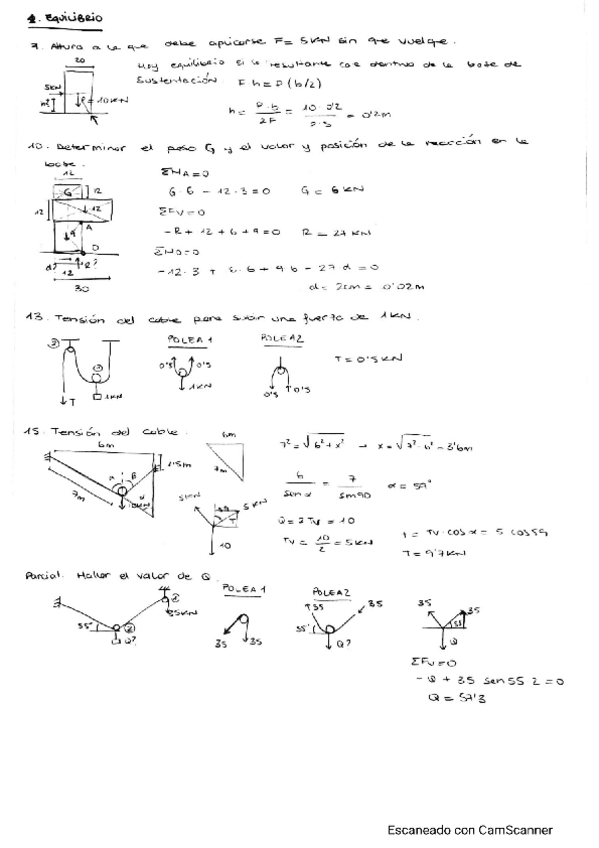 1. EQUILIBRIO
7. Altura a la que debe aplicarse F= 5KN sin que vuelque.
20
Hay equilibrio si la resultante cae dentro de la base de
sustentación. F·h = P(b/2)
5KN
h?
P=10KN
h = P·b / 2F = 10·0'2 / 2·5 = 0'2m
10. Determinar el peso G y el valor y posición de la reacción en la
base.
12
ΣMA=0
G
12
G·6 - 12·3=0 G = 6KN
12
12
ΣFV=0
A
9
-R + 12 + 6 + 9 = 0 R = 27KN
O
ΣMO=0
d? R?
12
-12·3 + 6·6 + 9·6 - 27 d = 0
30
d= 2cm = 0'02m
13. Tensión del cable para subir una fuerza de 1KN.
POLEA 1
POLEA 2
0'5 0'5
T = 0'5KN
1KN
T
1KN
0'5 0'5
15. Tensión del cable.
6m
6m
7m
1'5m
7m
7² = √6²+x² → x = √7²-6² = 3'6m
6 / sen α = 7 / sen 90 α = 59°
5KN
5KN
59
T
10
Q = 2Tv = 10
Tv = 10/2 = 5KN
T = Tv·cos α = 5 cos 59
T = 9'7KN
Parcial. Hallar el valor de Q.
POLEA 1
POLEA 2
35KN
55°
Q?
35 35
35 35
55°
Q?
35 35
55
Q
ΣFV=0
-Q + 35 sen 55 2 = 0
Q = 57'3
Escaneado con CamScanner